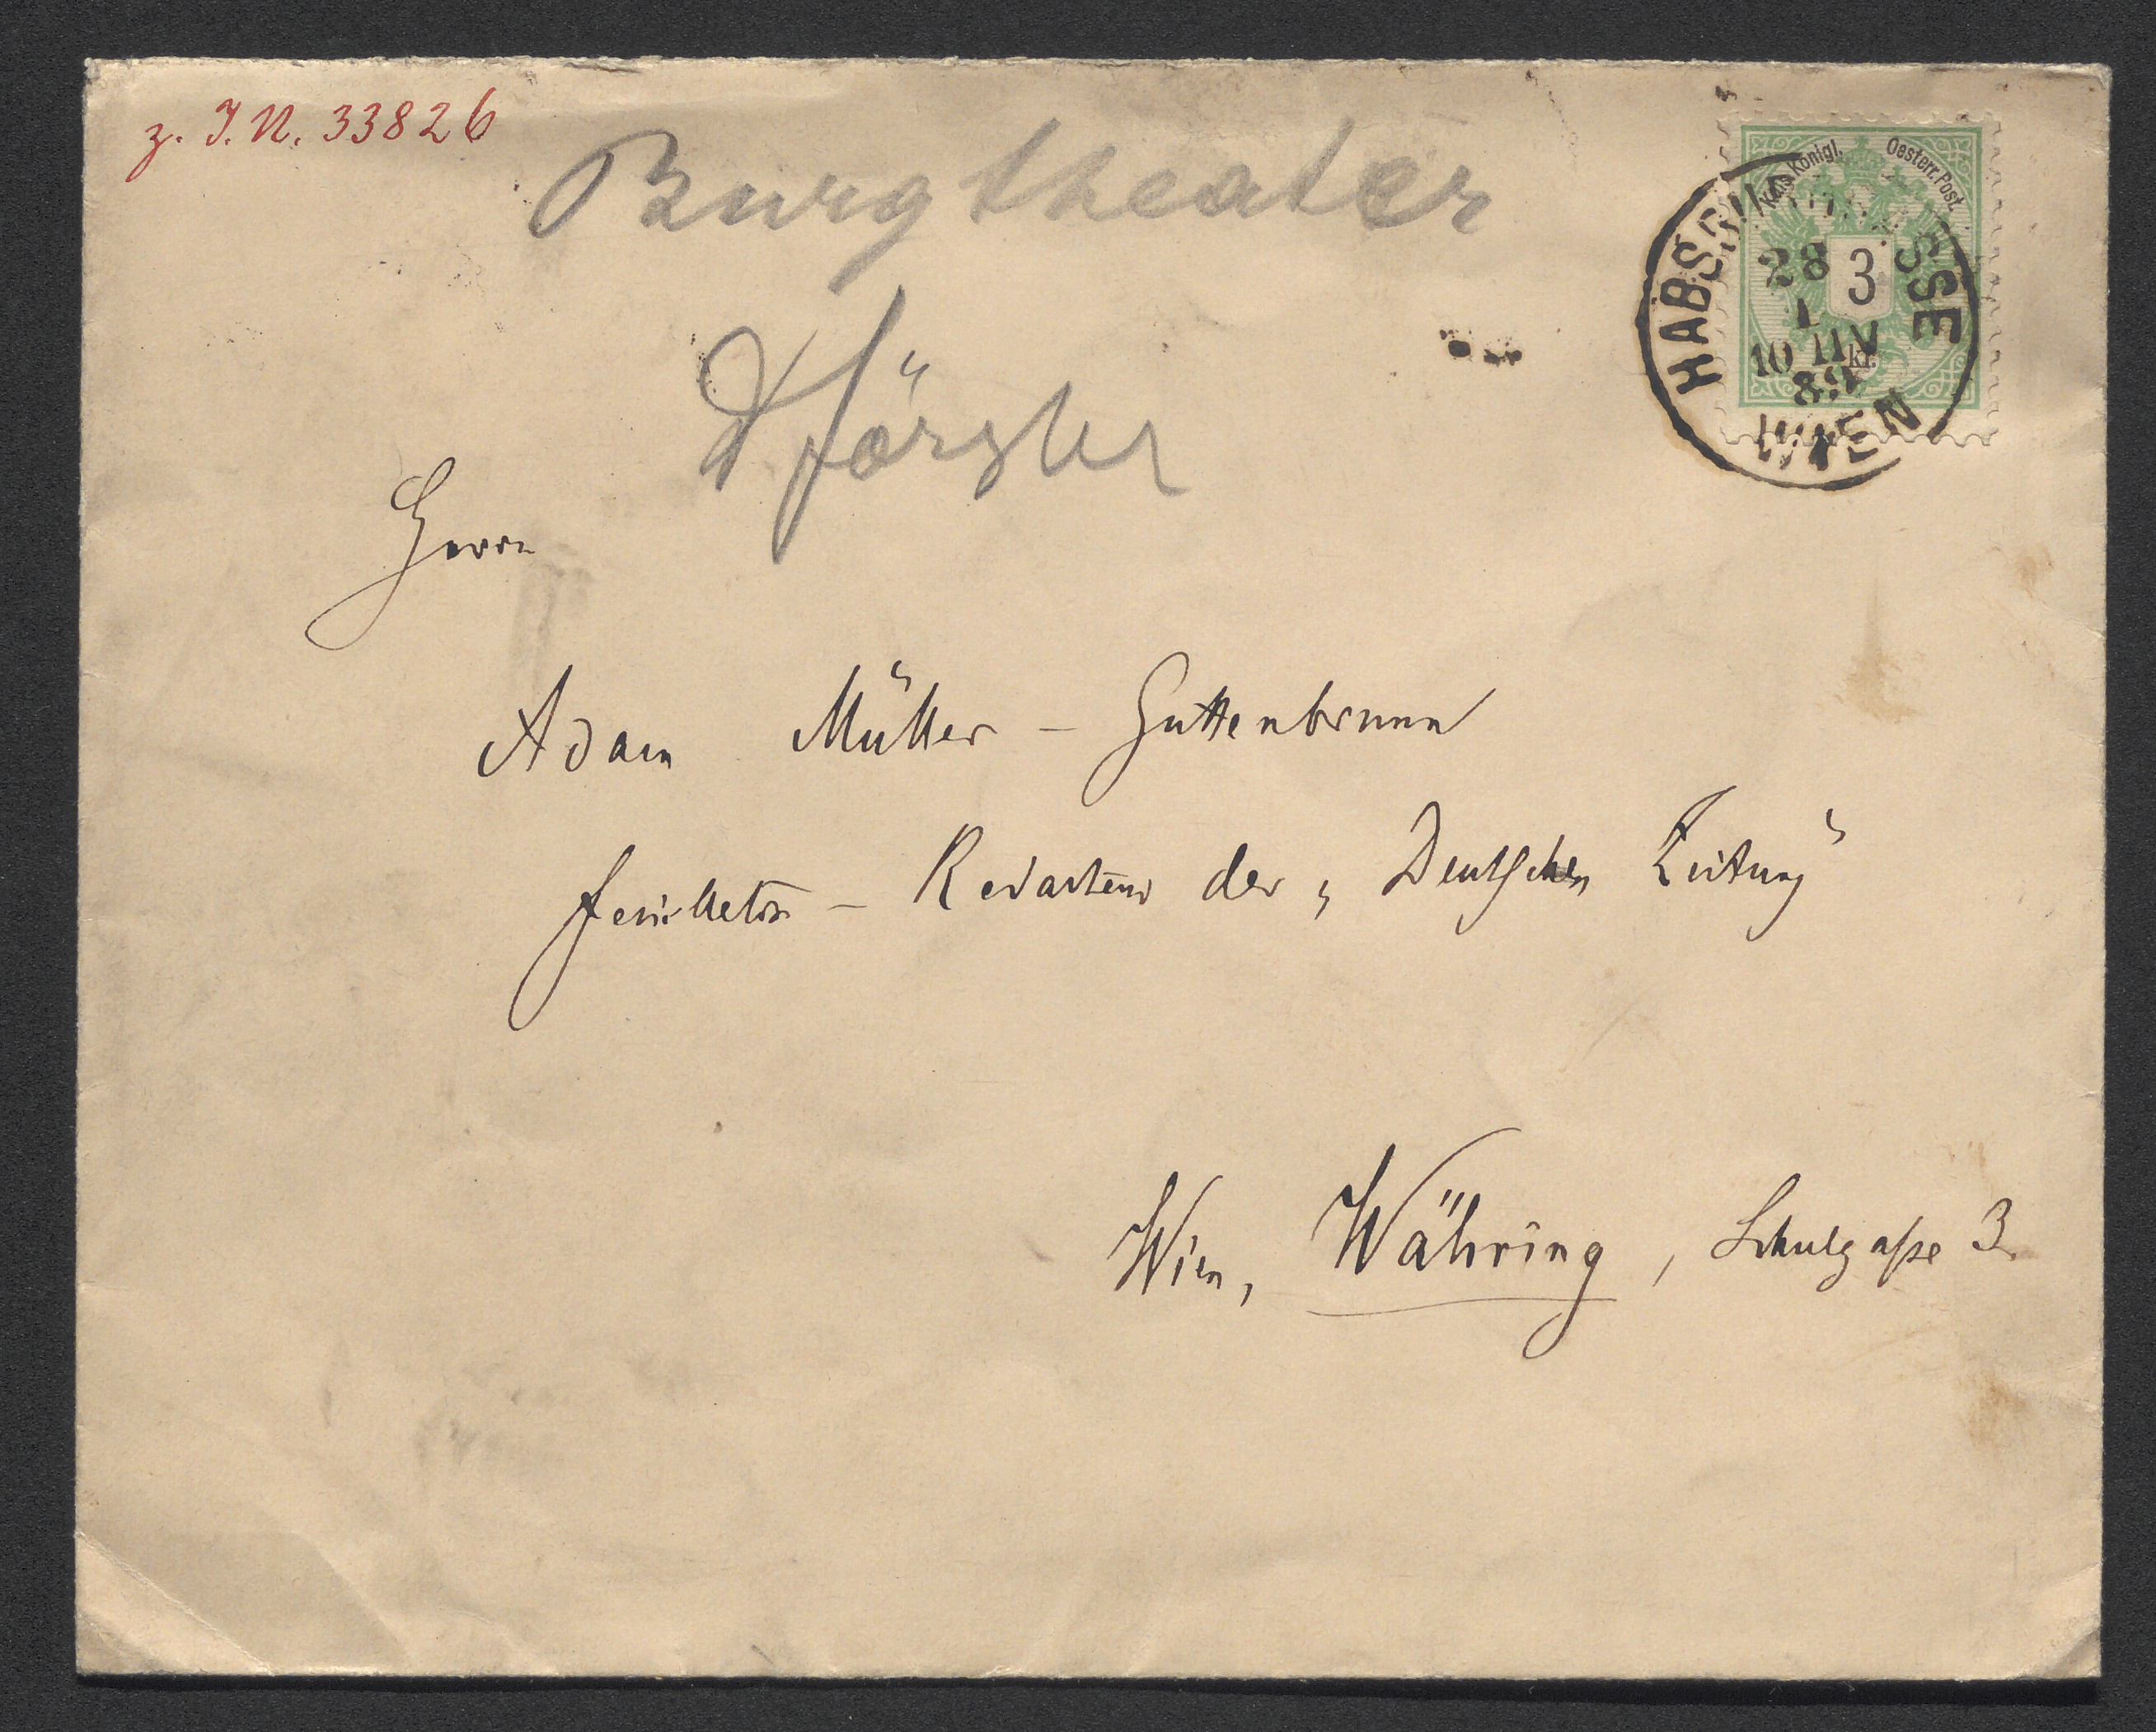 z. I. N. 33826
Burgtheater
Kais. Königl. Oesterr. Post.
3
kr.
HABSB SSE
28
1
10 V
89
WIEN
Förster
Herrn
Adam Müller - Guttenbrunn
Feuilleton - Redacteur der „Deutschen Zeitung“
Wien, Währing, Schulgaße 3.